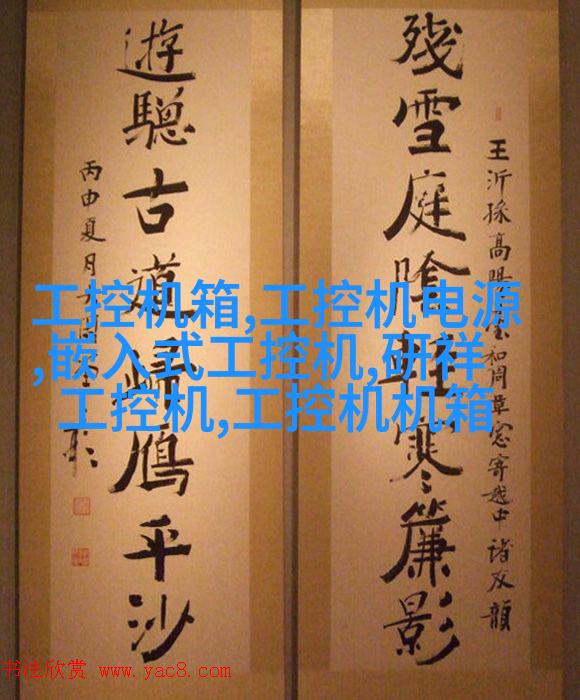 王沂孫高陽臺和周草窓寄越中諸友韻
殘雪庭陰輕寒簾影
遊驄古道歸鴈平沙
丙申夏月
工控机箱,工控机电源
,嵌入式工控机,研祥
工控机,工控机机箱
书法欣赏 www.yac8.com